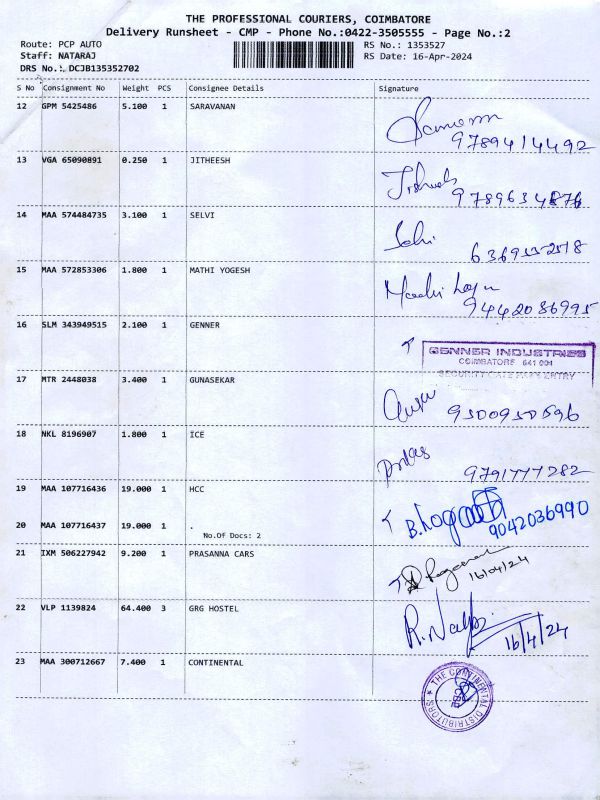 THE PROFESSIONAL COURIERS, COIMBATORE
Delivery Runsheet - CMP - Phone No.:0422-3505555 - Page No.:2
Route: PCP AUTO
RS No.: 1353527
Staff: NATARAJ
RS Date: 16-Apr-2024
DRS No.: DCJB135352702
S No Consignment No Weight PCS Consignee Details Signature
12 GPM 5425486 5.100 1 SARAVANAN
9789414492
13 VGA 65090891 0.250 1 JITHEESH
9789634876
14 MAA 574484735 3.100 1 SELVI
15 MAA 572853306 1.800 1 MATHI YOGESH
9442086995
16 SLM 343949515 2.100 1 GENNER
GENNER INDUSTRIES
COIMBATORE 641 001
SECURITY GATE ENTRY
17 MTR 2448038 3.400 1 GUNASEKAR
18 NKL 8196907 1.800 1 ICE
9791777282
19 MAA 107716436 19.000 1 HCC
9042036990
20 MAA 107716437 19.000 1 .
No.Of Docs: 2
21 IXM 506227942 9.200 1 PRASANNA CARS
16/04/24
22 VLP 1139824 64.400 3 GRG HOSTEL
16/4/24
23 MAA 300712667 7.400 1 CONTINENTAL
THE CONTINENTAL DISTRIBUTORS